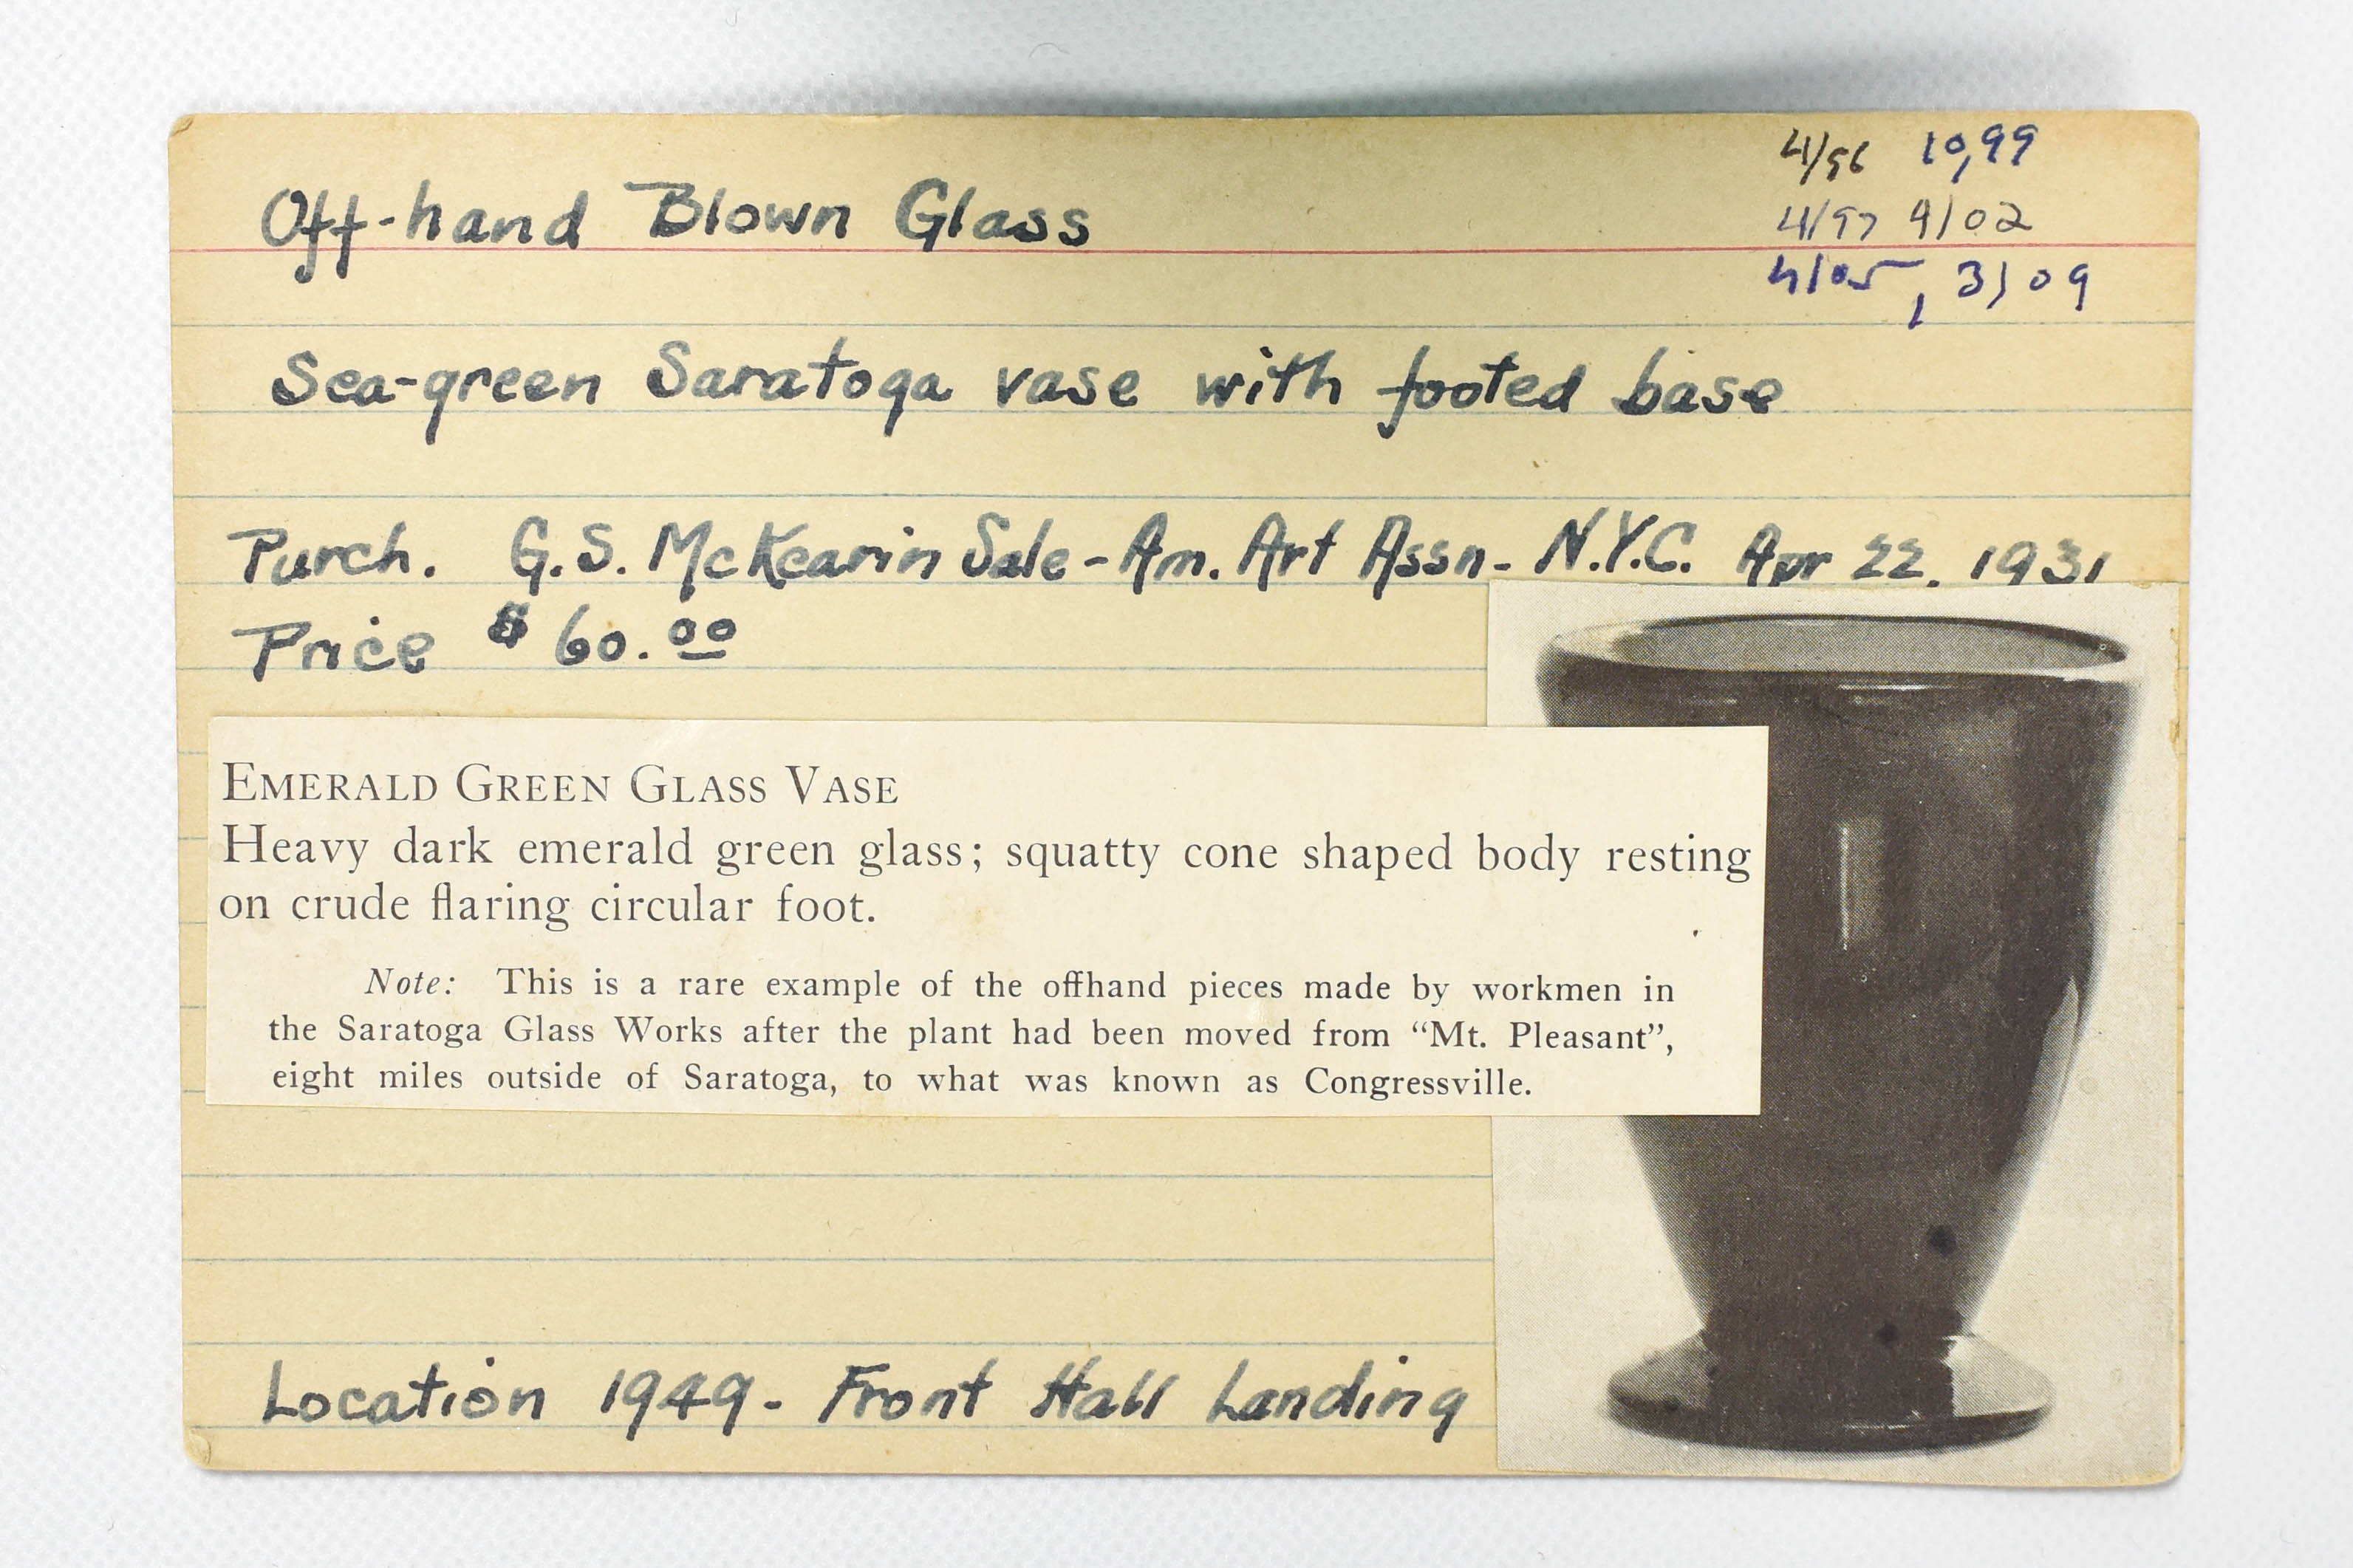 4/96 10,99
Off-hand Blown Glass
4/97 9/02
4/05, 3/09
Sea-green Saratoga vase with footed base
Purch. G.S. McKearin Sale - Am. Art Assn - N.Y.C. Apr 22. 1931
Price $60.00
EMERALD GREEN GLASS VASE
Heavy dark emerald green glass; squatty cone shaped body resting
on crude flaring circular foot.
Note: This is a rare example of the offhand pieces made by workmen in
the Saratoga Glass Works after the plant had been moved from “Mt. Pleasant”,
eight miles outside of Saratoga, to what was known as Congressville.
Location 1949 - Front Hall Landing